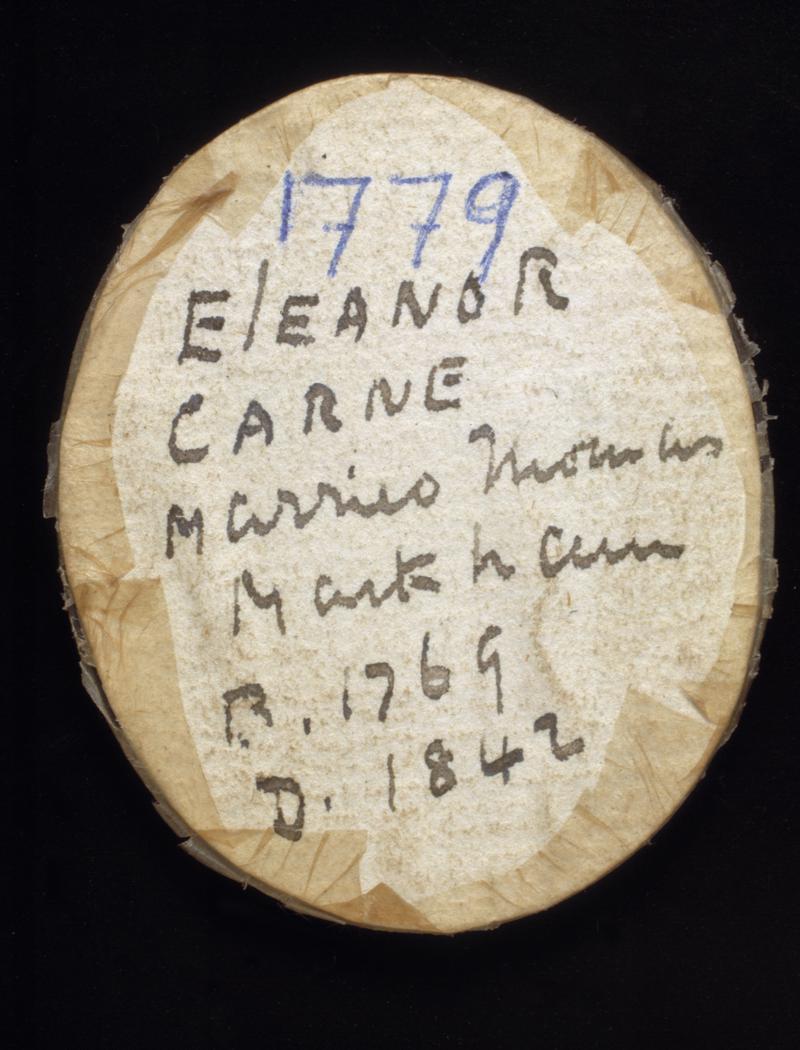 1779
ElEANOR
CARNE
Married Thomas
Markham
B. 1769
D. 1842